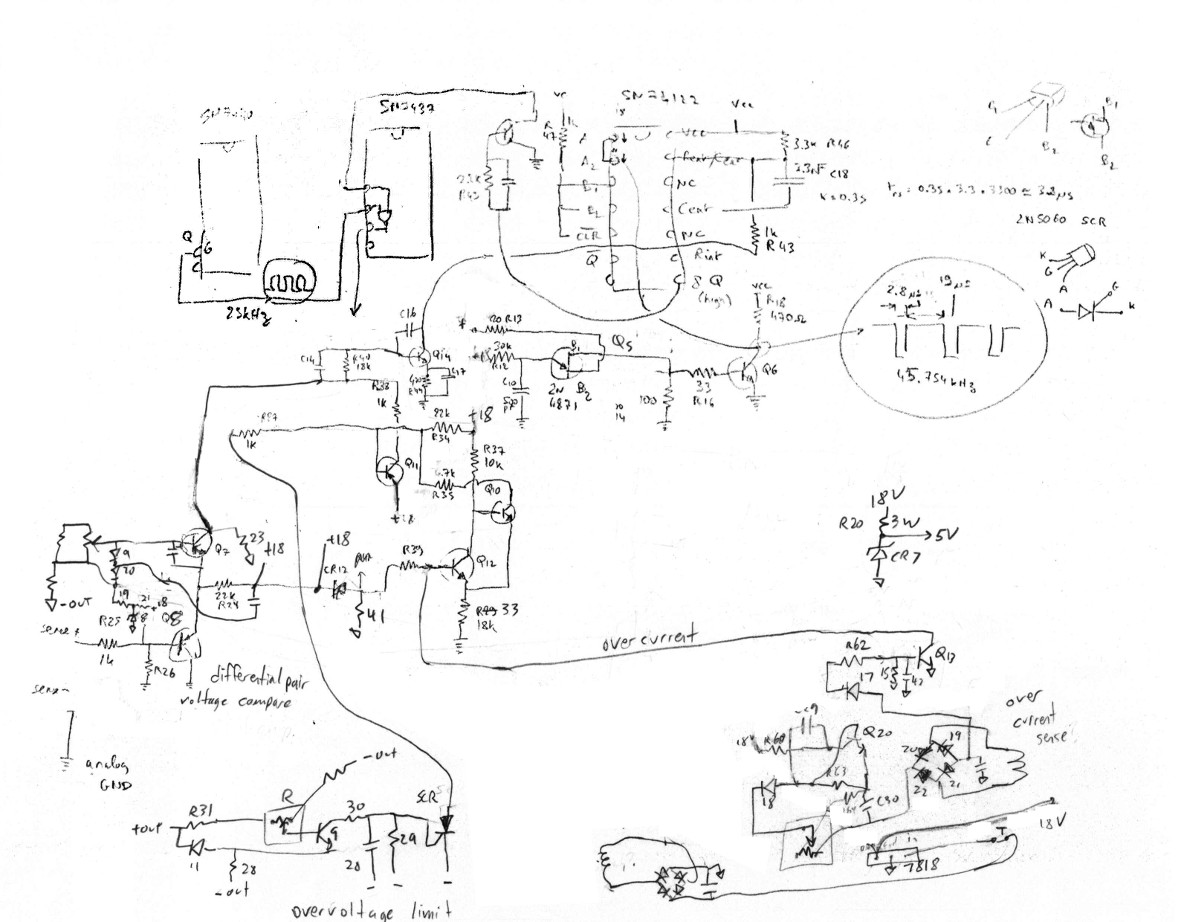 SN7437
SN74122
Vcc
Vcc
A2
B1
NC
Cext
CLR
NC
Rint
Q
8 Q
(high)
3.3k R46
C18
k=0.35
1k
R43
2N5060 SCR
B1
B2
B2
K
G
A
A
G
K
Q
G
25kHz
2.8µs
19µs
45.754kHz
vcc
R18
470Ω
C16
Q14
C17
C14
R40
18k
R38
1k
R13
30k
R12
C10
B1
B2
2N
4871
Q5
100
33
R16
Q6
1k
22k
R34
+18
R37
10k
Q11
4.7k
R35
Q10
+18
18V
R20
3W
5V
CR7
Q7
23
+18
9
20
19
22k
R24
-OUT
R25
Q8
sense+
1k
R26
+18
CR12
41
R39
Q12
33
18k
over current
differential pair
voltage compare
sense-
analog
GND
R62
17
15
42
Q13
over
current
sense
Q20
19
20
22
21
18
R63
C30
18V
7818
-out
R
R31
+out
11
28
-out
9
30
28
29
SCR
overvoltage limit